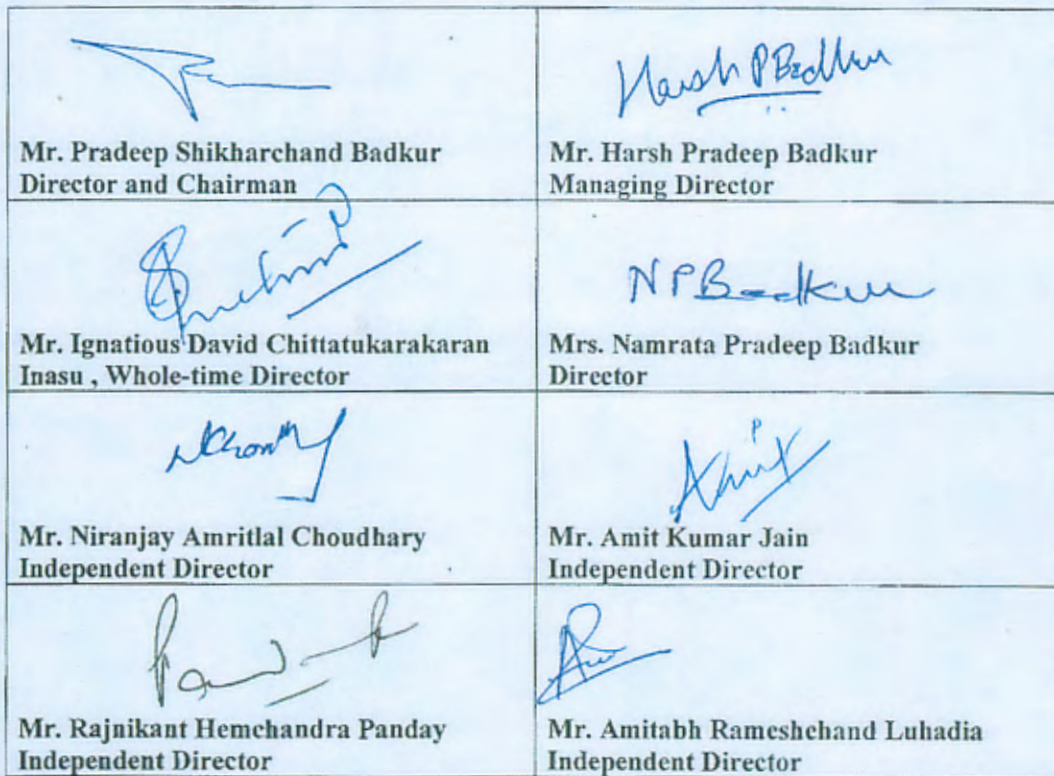 Mr. Pradeep Shikharchand Badkur
Director and Chairman
Harsh P Badkur
Mr. Harsh Pradeep Badkur
Managing Director
Mr. Ignatious David Chittatukarakaran
Inasu , Whole-time Director
N P Badkur
Mrs. Namrata Pradeep Badkur
Director
Mr. Niranjay Amritlal Choudhary
Independent Director
Amit
Mr. Amit Kumar Jain
Independent Director
Mr. Rajnikant Hemchandra Panday
Independent Director
Mr. Amitabh Rameshchand Luhadia
Independent Director